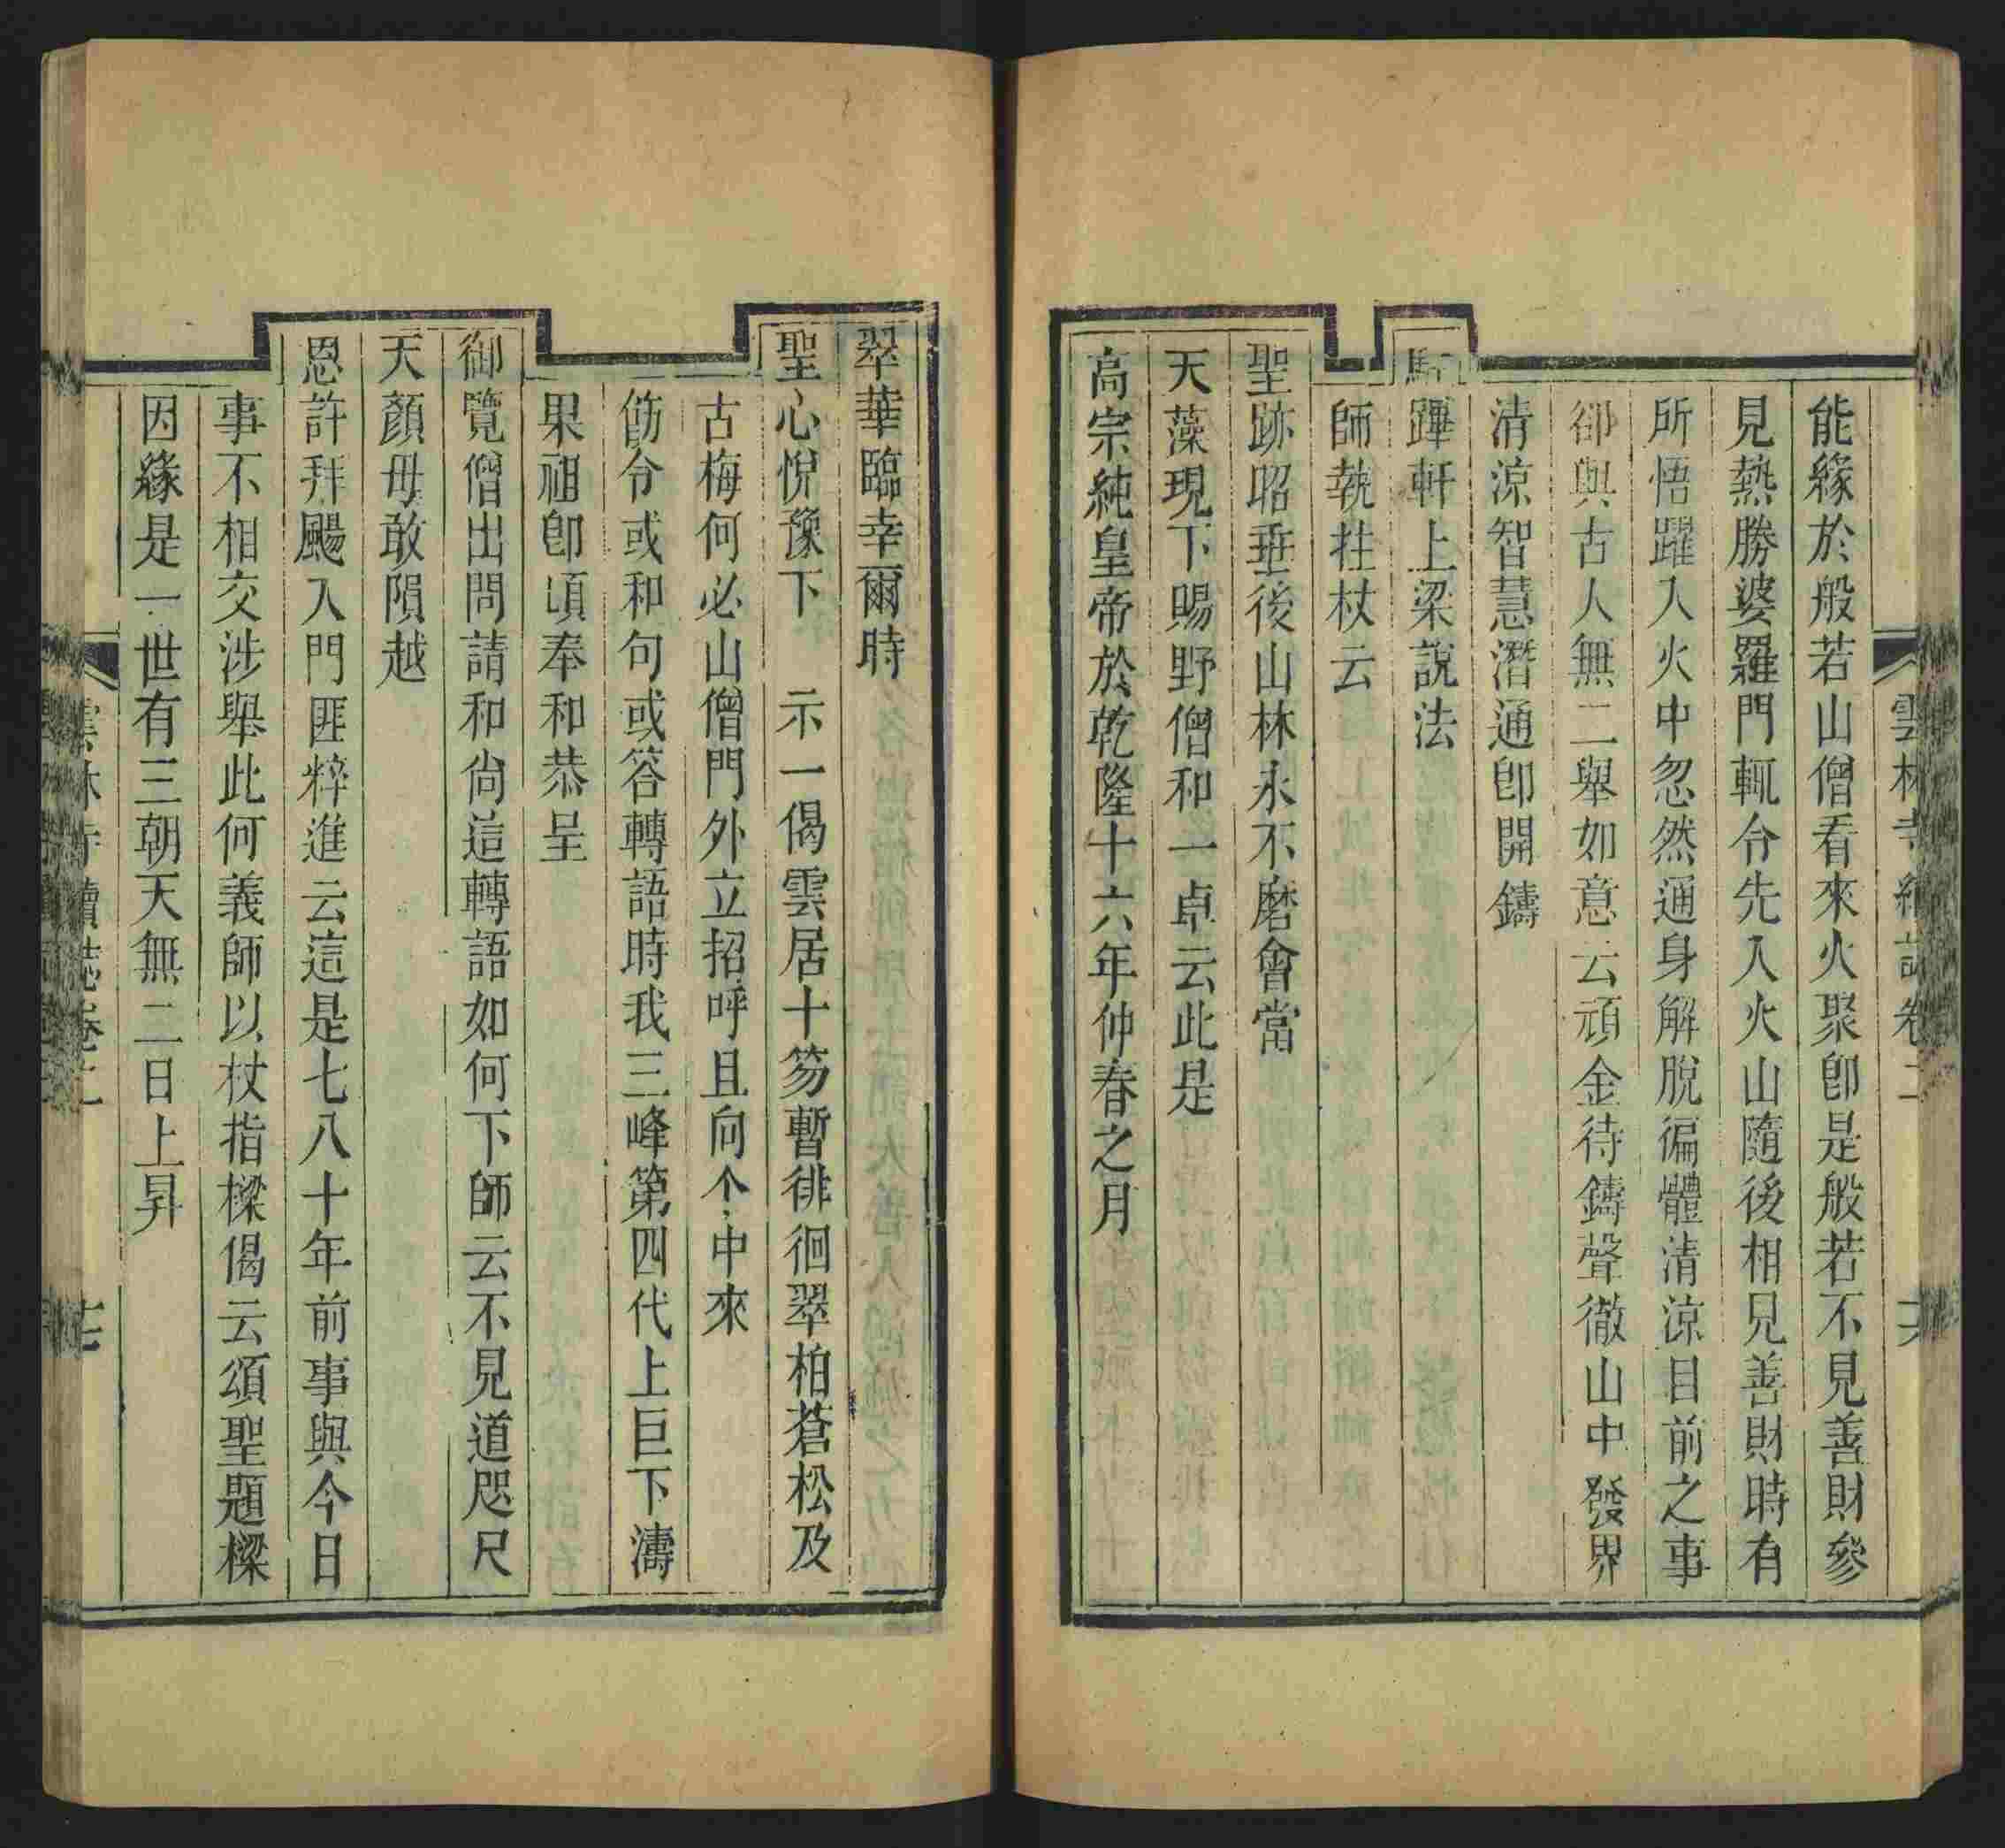 雲林寺續誌卷二
能緣於般若山僧看來火聚卽是般若不見善財參
見熱勝婆羅門輒令先入火山隨後相見善財時有
所悟躍入火中忽然通身解脫徧體清涼目前之事
卻與古人無二舉如意云頑金待鑄聲徹山中發界
清涼智慧潛通卽開鑄
駐蹕軒上梁說法
師執拄杖云
聖跡昭垂後山林永不磨會當
天藻現下賜野僧和一卓云此是
高宗純皇帝於乾隆十六年仲春之月
翠華臨幸爾時
聖心悅豫下　示一偈雲居十笏暫徘徊翠柏蒼松及
古梅何必山僧門外立招呼且向个中來
飭令或和句或答轉語時我三峰第四代上巨下濤
果祖卽頃奉和恭呈
御覽僧出問請和尙這轉語如何下師云不見道咫尺
天顏毋敢隕越
恩許拜颺入門匪粹進云這是七八十年前事與今日
事不相交涉舉此何義師以杖指樑偈云頌聖題樑
因緣是一世有三朝天無二日上昇
雲林寺續誌卷二